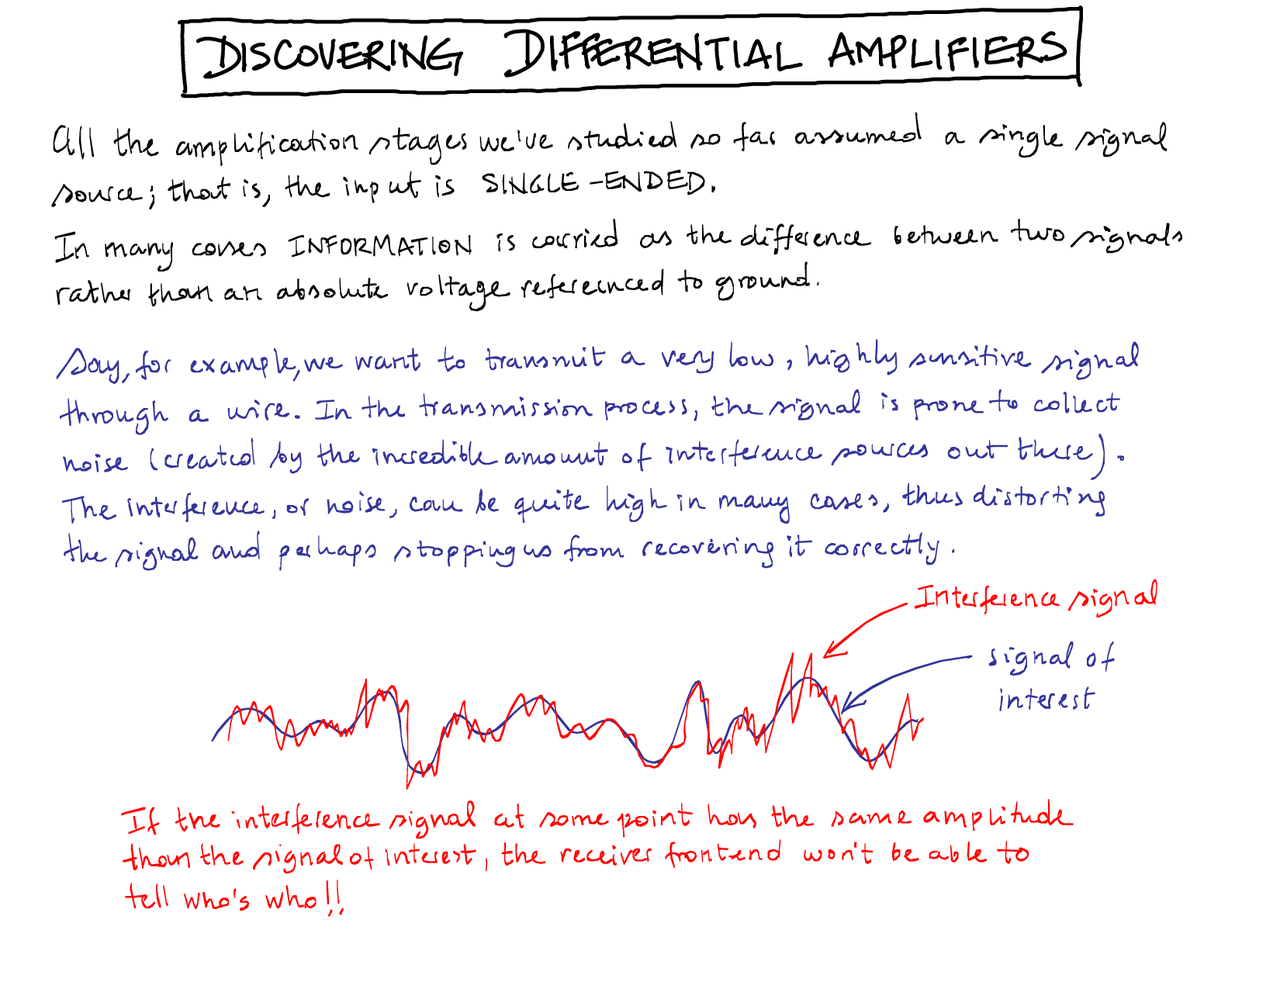 DISCOVERING DIFFERENTIAL AMPLIFIERS
All the amplification stages we've studied so far assumed a single signal
source; that is, the input is SINGLE-ENDED.
In many cases INFORMATION is carried as the difference between two signals
rather than an absolute voltage refereenced to ground.
Say, for example, we want to transmit a very low, highly sensitive signal
through a wire. In the transmission process, the signal is prone to collect
noise (created by the incredible amount of interference sources out there).
The interference, or noise, can be quite high in many cases, thus distorting
the signal and perhaps stopping us from recovering it correctly.
Interference signal
signal of
interest
If the interference signal at some point has the same amplitude
than the signal of interest, the receiver frontend won't be able to
tell who's who!!